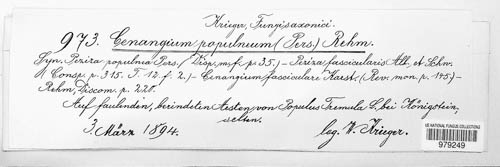 Krieger, Fungi saxonici.
973. Cenangium populneum (Pers.) Rehm.
Syn. Peziza populnea Pers. / Disp. m. f. p. 35.) – Peziza fascicularis Alb. et Schw.
Consp. p. 315. T. 12. f. 2.) – Cenangium fasciculare Karst. (Rev. mon. p. 145) –
Rehm, Discom. p. 220.
Auf faulenden, berindeten Aesten von Populus Tremula L. bei Königstein,
selten.
3. März 1894. leg. W. Krieger.
US NATIONAL FUNGUS COLLECTIONS
979249